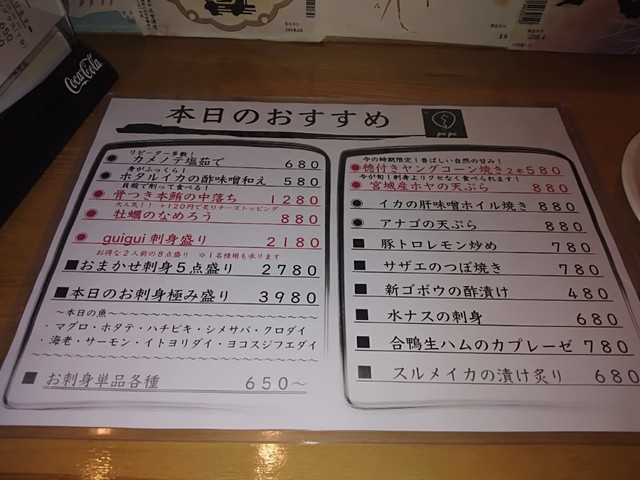 Coca-Cola
本日のおすすめ
リピーター多数!
カメノテ塩茹で 680
身がふっくら!
ホタルイカの酢味噌和え 580
貝殻で削って食べる!
骨つき本鮪の中落ち 1280
大人気!!+120円で炙りチーズトッピング
牡蠣のなめろう 880
guigui刺身盛り 2180
お得な2人前の8点盛り ※1名様用も承ります
おまかせ刺身5点盛り 2780
本日のお刺身極み盛り 3980
～本日の魚～
・マグロ・ホタテ・ハチビキ・シメサバ・クロダイ
・海老・サーモン・イトヨリダイ・ヨコスジフエダイ
お刺身単品各種 650～
今の時期限定!香ばしい自然の甘み!
穂付きヤングコーン焼き2本 580
今が旬!刺身よりクセなく食べられます!
宮城産ホヤの天ぷら 880
イカの肝味噌ホイル焼き 880
アナゴの天ぷら 880
豚トロレモン炒め 780
サザエのつぼ焼き 780
新ゴボウの酢漬け 480
水ナスの刺身 680
合鴨生ハムのカプレーゼ 780
スルメイカの漬け炙り 680